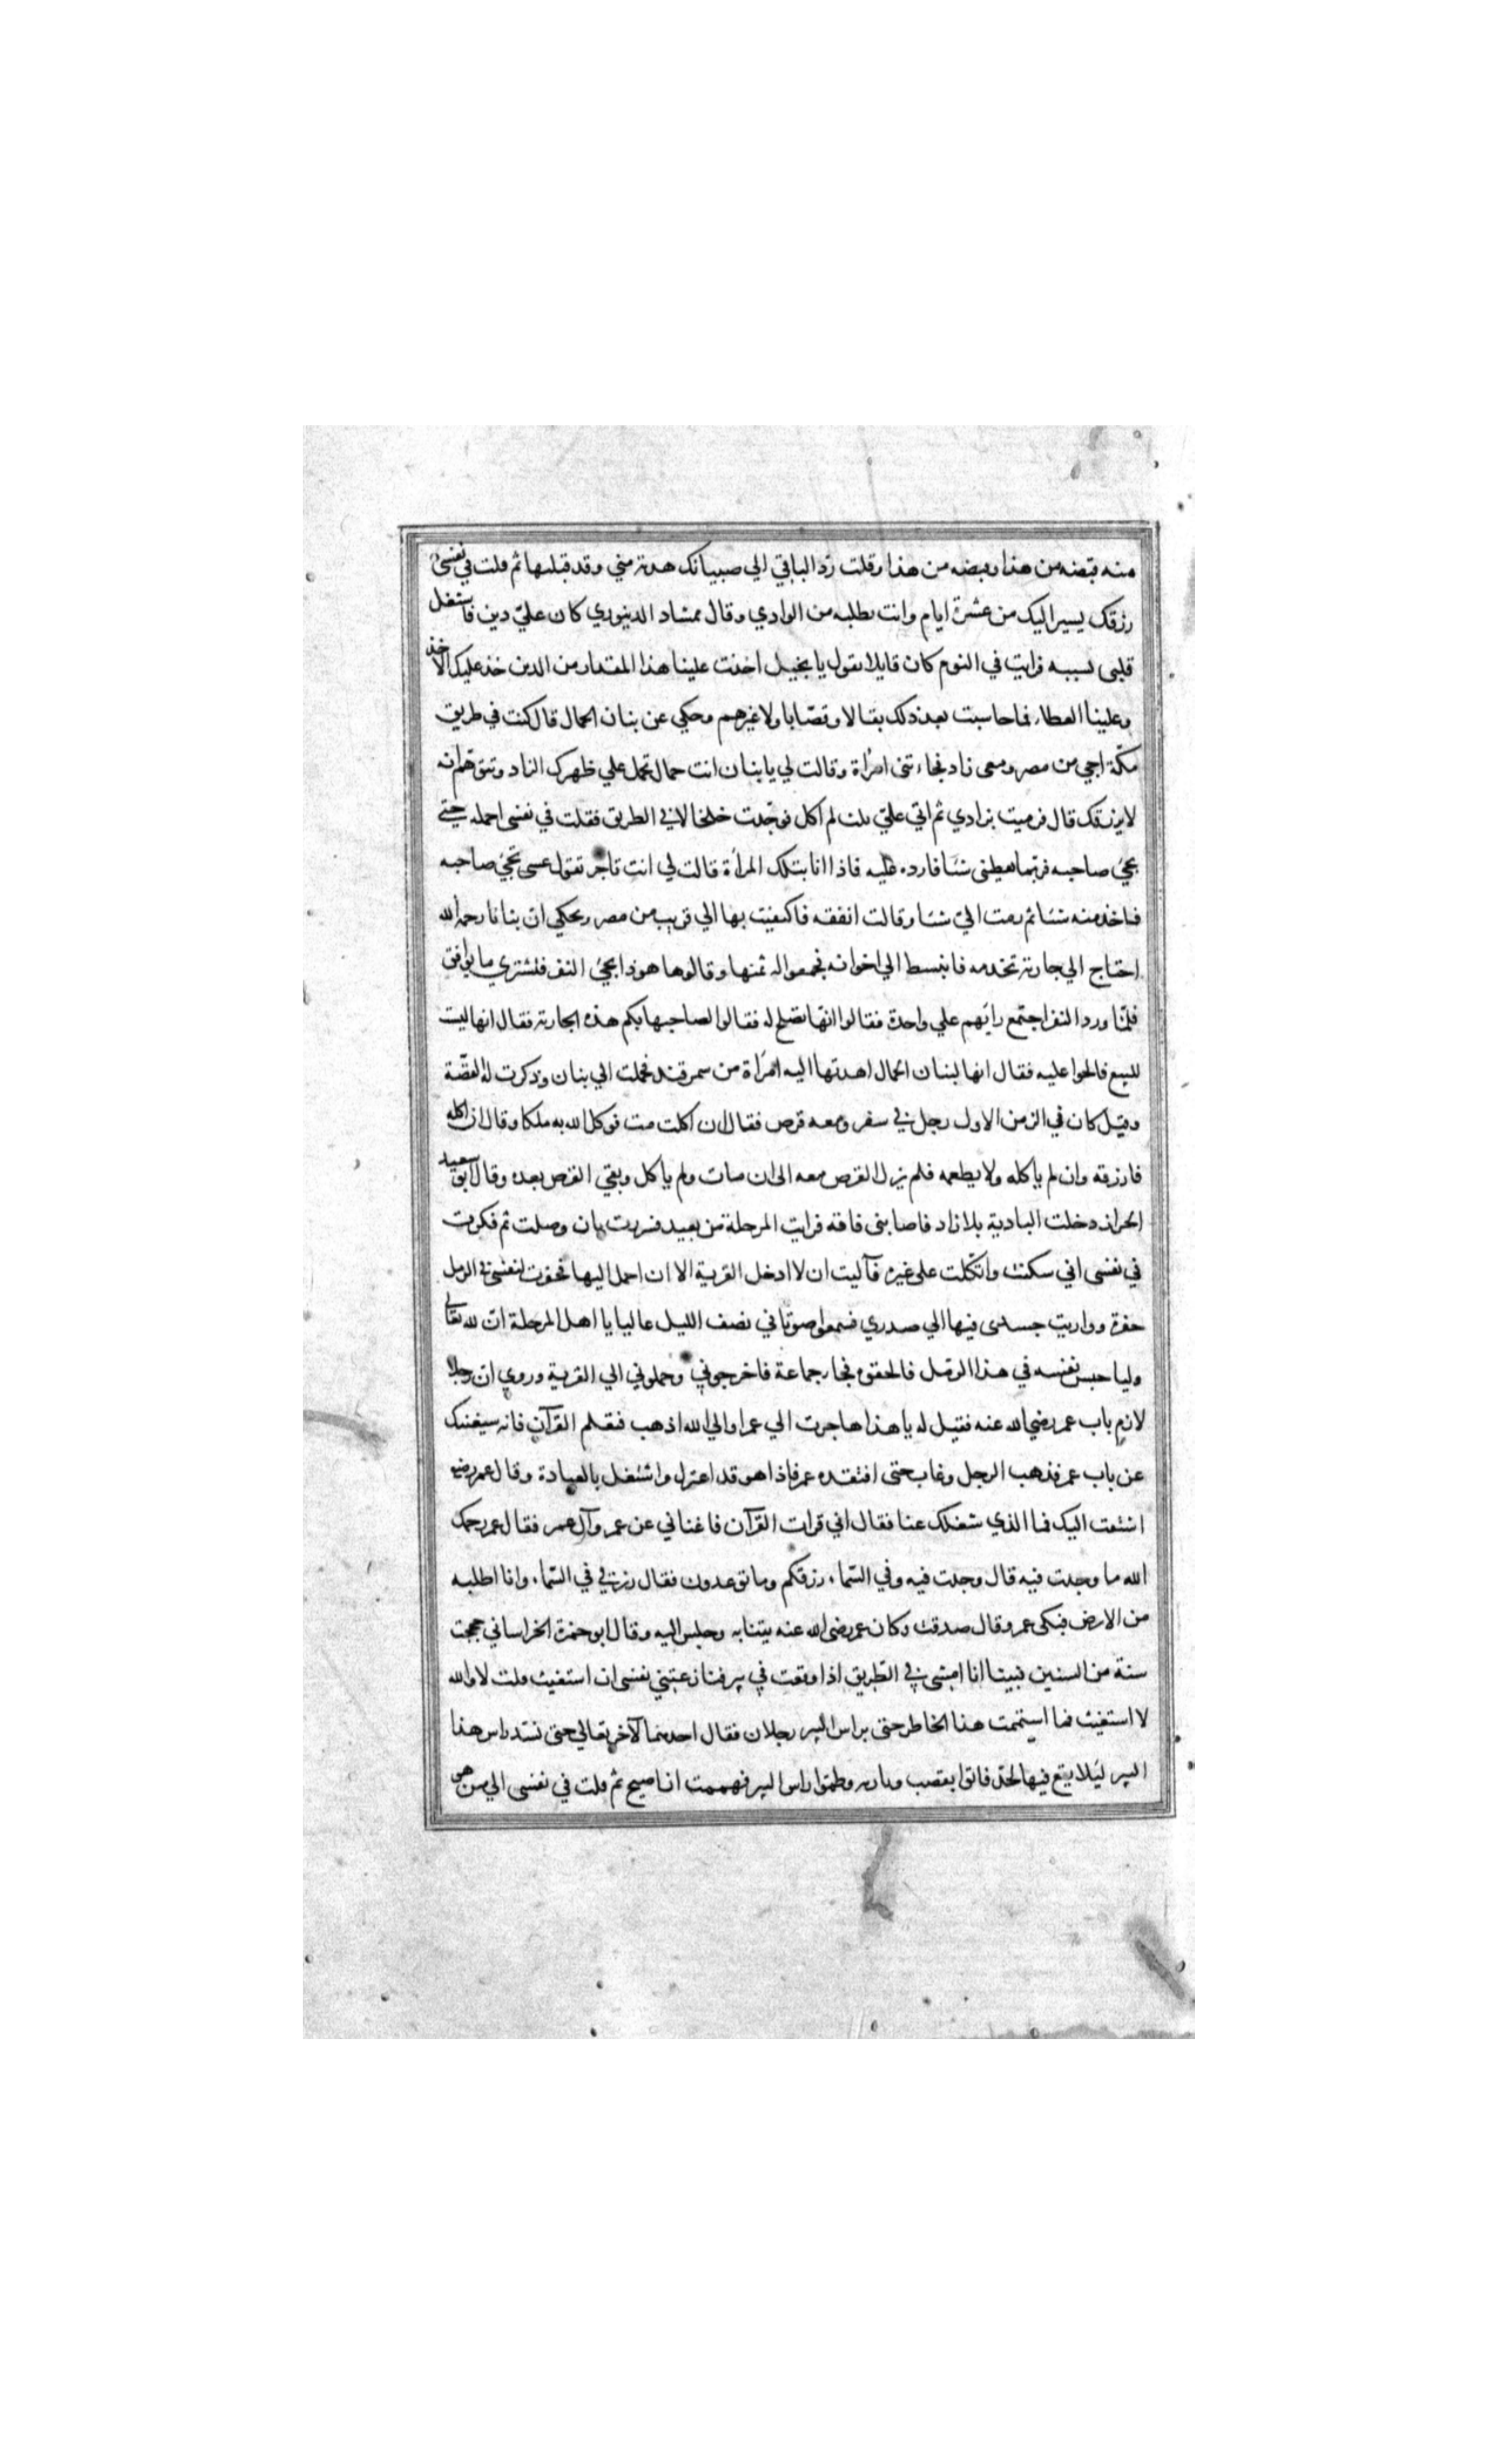 منه قبضه من هذا وقبضه من هذا وقلت رد الباقي الي صبيانك هدية مني وقد قبلتها ثم قلت في نفسي
رزقك يسير اليك من عشرة ايام وانت تطلبه من الوادي وقال ممشاد الدينوري كان علي دين فاشتغل
قلبى بسببه فرايت في النوم كان قايلا يقول يا بخيل اخذت علينا هذا المقدار من الدين خذ عليك الاخذ
وعلينا العطاء فما حاسبت بعد ذلك بقالا ولا قصابا ولا غيرهم وحكي عن بنان الحمال قال كنت في طريق
مكة اجي من مصر ومعى زاد فجاءتنى امرأة وقالت لي يا بنان انت حمال تحمل علي ظهرك الزاد وتتوهم انه
لا يرزقك قال فرميت بزادي ثم اتي علي ثلث لم اكل فوجدت خلخالا في الطريق فقلت في نفسى احمله حتي
يجئ صاحبه فربما يعطينى شئا فارده عليه فاذا انا بتلك المرأة قالت لي انت تاجر تقول عسى يجئ صاحبه
فاخذ منه شئا ثم رمت الي شئا وقالت انفقه فاكتفيت بها الي قريب من مصر ويحكي ان بنانا رحمه الله
احتاج الي جارية تخدمه فانبسط الي اخوانه فجمعوا له ثمنها وقالوا هوذا يجئ النفر فلشتري ما يوافق
فلما ورد النفر اجتمع رايهم علي واحدة فقالوا انها تصلح له فقالوا لصاحبها بكم هذه الجارية فقال انها ليست
للبيع فالحوا عليه فقال انها لبنان الحمال اهدتها اليه امرأة من سمرقند فحملت الي بنان وذكرت له القصة
وقيل كان في الزمن الاول رجل في سفر ومعه قرص فقال ان اكلت مت فوكل الله به ملكا وقال ان اكله
فارزقه وان لم ياكله ولا يطعمه فلم يزل القرص معه الى ان مات ولم ياكل وبقي القرص بعده وقال ابو سعيد
الخراز دخلت البادية بلا زاد فاصابنى فاقة فرايت المرحلة من بعيد فسررت بان وصلت ثم فكرت
في نفسى اني سكنت واتكلت على غيره فآليت ان لا ادخل القرية الا ان احمل اليها فحفرت لنفسى في الرمل
حفرة وواريت جسدى فيها الي صدري فسمعوا صوتا في نصف الليل عاليا يا اهل المرحلة ان لله تعالي
وليا حبس نفسه في هذا الرمل فالحقوه فجاء جماعة فاخرجوني وحملوني الي القرية وروي ان رجلا
لازم باب عمر رضي الله عنه فقيل له يا هذا هاجرت الي عمر او الي الله اذهب فتعلم القرآن فانه سيغنيك
عن باب عمر فذهب الرجل وغاب حتى افتقده عمر فاذا هو قد اعتزل واشتغل بالعبادة وقال عمر رضي
اشتقت اليك فما الذي شغلك عنا فقال اني قرات القرآن فاغناني عن عمر وآل عمر فقال عمر رحمك
الله ما وجدت فيه قال وجدت فيه وفي السماء رزقكم وما توعدون فقال رزقي في السماء وانا اطلبه
من الارض فبكى عمر وقال صدقت وكان عمر رضى الله عنه ينتابه ويجلس اليه وقال ابو حمزة الخراساني حججت
سنة من السنين فبينا انا امشى في الطريق اذا وقعت في بير فنازعتني نفسى ان استغيث قلت لا والله
لا استغيث فما استتممت هذا الخاطر حتى براس البير رجلان فقال احدهما لآخر تعالي حتى نسد راس هذا
البير ليلا يقع فيها احد فاتوا بقصب وبارية وطموا راس البير فهممت ان اصيح ثم قلت في نفسى الي من هو